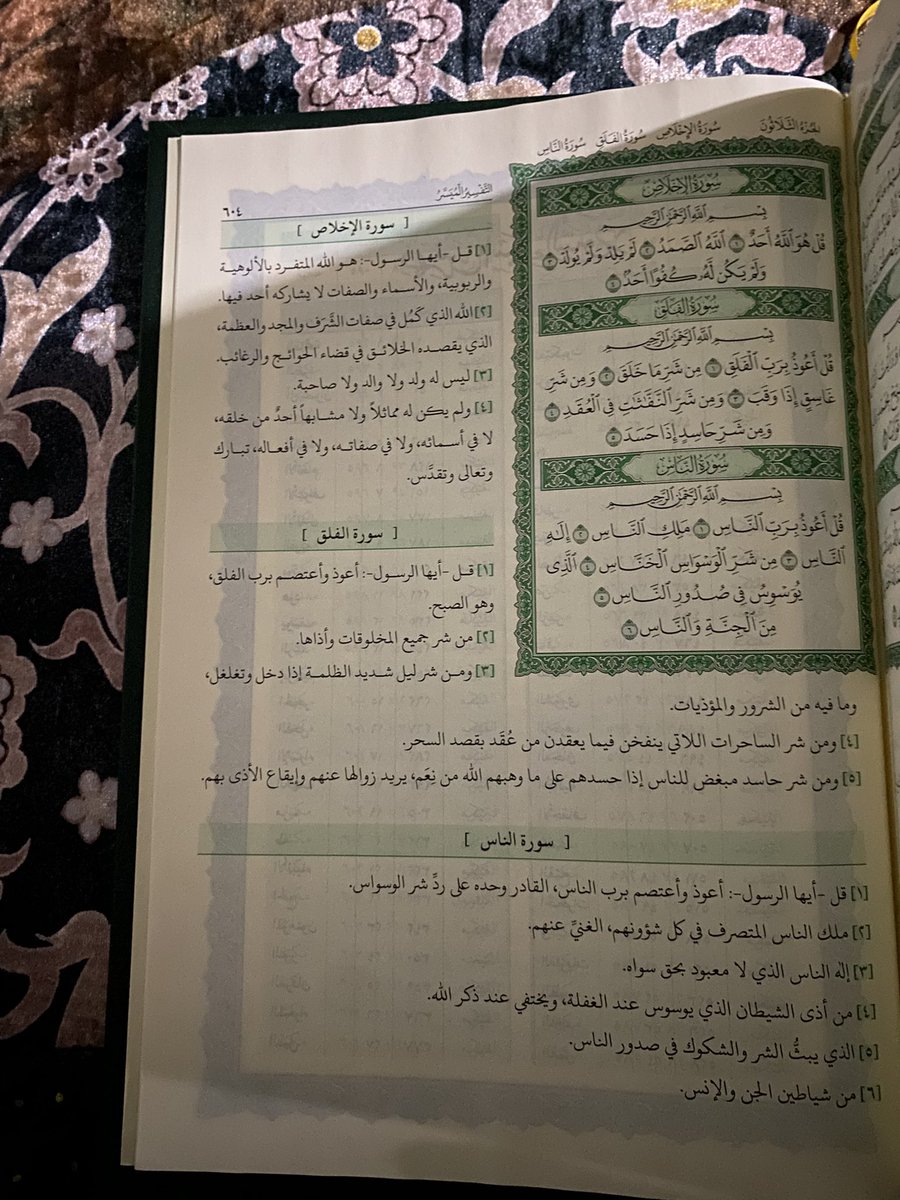 الجزء الثلاثون سورة الإخلاص سورة الفلق سورة الناس
سُورَةُ الإِخْلَاصِ
بِسْمِ ٱللَّهِ ٱلرَّحْمَٰنِ ٱلرَّحِيمِ
قُلْ هُوَ ٱللَّهُ أَحَدٌ ١ ٱللَّهُ ٱلصَّمَدُ ٢ لَمْ يَلِدْ وَلَمْ يُولَدْ ٣
وَلَمْ يَكُن لَّهُۥ كُفُوًا أَحَدٌ ٤
سُورَةُ الْفَلَقِ
بِسْمِ ٱللَّهِ ٱلرَّحْمَٰنِ ٱلرَّحِيمِ
قُلْ أَعُوذُ بِرَبِّ ٱلْفَلَقِ ١ مِن شَرِّ مَا خَلَقَ ٢ وَمِن شَرِّ
غَاسِقٍ إِذَا وَقَبَ ٣ وَمِن شَرِّ ٱلنَّفَّٰثَٰتِ فِى ٱلْعُقَدِ ٤
وَمِن شَرِّ حَاسِدٍ إِذَا حَسَدَ ٥
سُورَةُ النَّاسِ
بِسْمِ ٱللَّهِ ٱلرَّحْمَٰنِ ٱلرَّحِيمِ
قُلْ أَعُوذُ بِرَبِّ ٱلنَّاسِ ١ مَلِكِ ٱلنَّاسِ ٢ إِلَٰهِ
ٱلنَّاسِ ٣ مِن شَرِّ ٱلْوَسْوَاسِ ٱلْخَنَّاسِ ٤ ٱلَّذِى
يُوَسْوِسُ فِى صُدُورِ ٱلنَّاسِ ٥
مِنَ ٱلْجِنَّةِ وَٱلنَّاسِ ٦
التَّفْسِيرُ الْمُيَسَّرُ
٦٠٤
[ سورة الإخلاص ]
[١] قـل -أيهـا الرسول-: هـو الله المتفـرد بالألوهية
والربوبية، والأسماء والصفات لا يشاركه أحد فيها.
[٢] الله الذي كَمُل في صفات الشَّرَف والمجد والعظمة،
الذي يقصده الخلائق في قضاء الحوائج والرغائب.
[٣] ليس له ولد ولا والد ولا صاحبة.
[٤] ولم يكن له مماثلاً ولا مشابهاً أحدٌ من خلقه،
لا في أسـمائه، ولا في صفاتـه، ولا في أفعـاله، تبـارك
وتعالى وتقدَّس.
[ سورة الفلق ]
[١] قـل -أيها الرسول-: أعوذ وأعتصـم برب الفلق،
وهو الصبح.
[٢] من شر جميع المخلوقات وأذاها.
[٣] ومـن شر ليل شـديد الظلمـة إذا دخل وتغلغل،
وما فيه من الشرور والمؤذيات.
[٤] ومن شر الساحرات اللاتي ينفخن فيما يعقدن من عُقَد بقصد السحر.
[٥] ومن شر حاسد مبغض للناس إذا حسدهم على ما وهبهم الله من نِعَم، يريد زوالها عنهم وإيقاع الأذى بهم.
[ سورة الناس ]
[١] قل -أيها الرسول-: أعوذ وأعتصم برب الناس، القادر وحده على ردِّ شر الوسواس.
[٢] ملك الناس المتصرف في كل شؤونهم، الغنيِّ عنهم.
[٣] إله الناس الذي لا معبود بحق سواه.
[٤] من أذى الشيطان الذي يوسوس عند الغفلة، ويختفي عند ذكر الله.
[٥] الذي يبثُّ الشر والشكوك في صدور الناس.
[٦] من شياطين الجن والإنس.